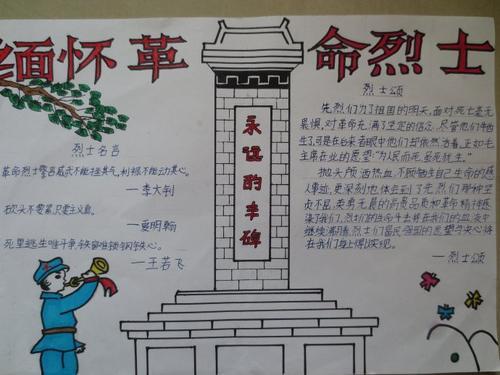 缅怀革命烈士
烈士名言
革命烈士誓言威武不能挫其气,利禄不能动其心。
—李大钊
砍头不要紧,只要主义真。
—夏明翰
死里逃生唯斗争,铁窗难锁钢铁心。
—王若飞
永远的丰碑
烈士颂
先烈们为了祖国的明天,面对死亡毫无
畏惧,对革命充满了坚定的信念,尽管他们牺
生了,可是在后来者眼中他们却依然活着,正如毛
主席在世的愿望:"为人民而死,虽死犹生。"
抛头颅,洒热血,不顾牺牲自己生命的感
人事迹,更深刻地体会到了先烈们那种坚
贞不屈、英勇无畏的高贵品质和革命精神感
染了我们,烈士们的生命斗志将在我们的血液中
继续涌动着,烈士们富民强国的愿望与决心将
在我们身上得以实现。
—烈士颂